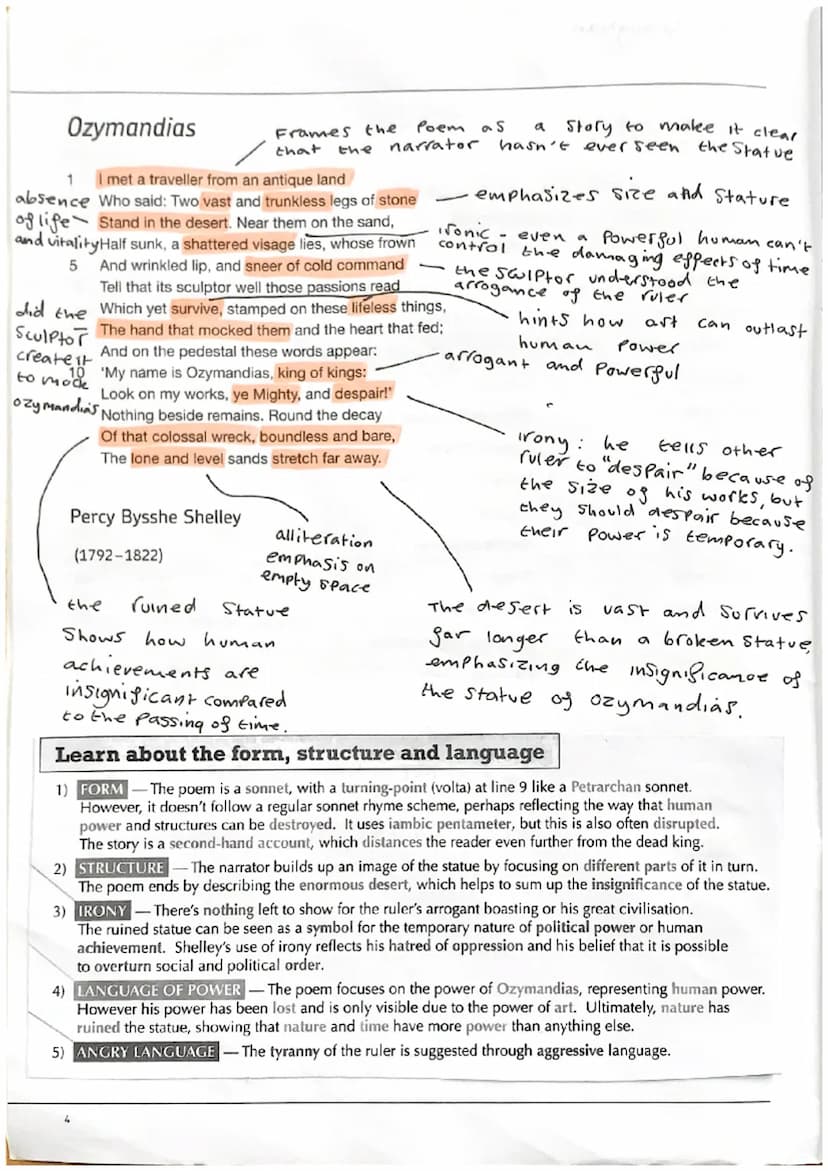 Ozymandias
Frames the Poem as a Story to make it clear
that the narrator hasn't ever seen the Statue
1 I met a traveller from an antique land
Who said: Two vast and trunkless legs of stone
Stand in the desert. Near them on the sand,
Half sunk, a shattered visage lies, whose frown
5 And wrinkled lip, and sneer of cold command
Tell that its sculptor well those passions read
Which yet survive, stamped on these lifeless things,
The hand that mocked them and the heart that fed;
And on the pedestal these words appear:
10 'My name is Ozymandias, king of kings:
Look on my works, ye Mighty, and despair!'
Nothing beside remains. Round the decay
Of that colossal wreck, boundless and bare,
The lone and level sands stretch far away.
absence
of life
and vitality
did the
Sculptor
create it
to mock
Ozymandias
emphasizes size and Stature
ironic - even a powerful human can't
control the damaging effects of time
the sculptor understood the
arrogance of the ruler
hints how art can outlast
human power
arrogant and Powerful
irony: he tells other
ruler to "despair" because of
the size of his works, but
they should despair because
their power is temporary.
Percy Bysshe Shelley
(1792–1822)
alliteration
emphasis on
empty space
the ruined Statue
Shows how human
achievements are
insignificant compared
to the passing of time.
The desert is vast and survives
far longer than a broken statue,
emphasizing the insignificance of
the statue of Ozymandias.
Learn about the form, structure and language
1) FORM — The poem is a sonnet, with a turning-point (volta) at line 9 like a Petrarchan sonnet.
However, it doesn't follow a regular sonnet rhyme scheme, perhaps reflecting the way that human
power and structures can be destroyed. It uses iambic pentameter, but this is also often disrupted.
The story is a second-hand account, which distances the reader even further from the dead king.
2) STRUCTURE — The narrator builds up an image of the statue by focusing on different parts of it in turn.
The poem ends by describing the enormous desert, which helps to sum up the insignificance of the statue.
3) IRONY — There's nothing left to show for the ruler's arrogant boasting or his great civilisation.
The ruined statue can be seen as a symbol for the temporary nature of political power or human
achievement. Shelley's use of irony reflects his hatred of oppression and his belief that it is possible
to overturn social and political order.
4) LANGUAGE OF POWER — The poem focuses on the power of Ozymandias, representing human power.
However his power has been lost and is only visible due to the power of art. Ultimately, nature has
ruined the statue, showing that nature and time have more power than anything else.
5) ANGRY LANGUAGE — The tyranny of the ruler is suggested through aggressive language.
4